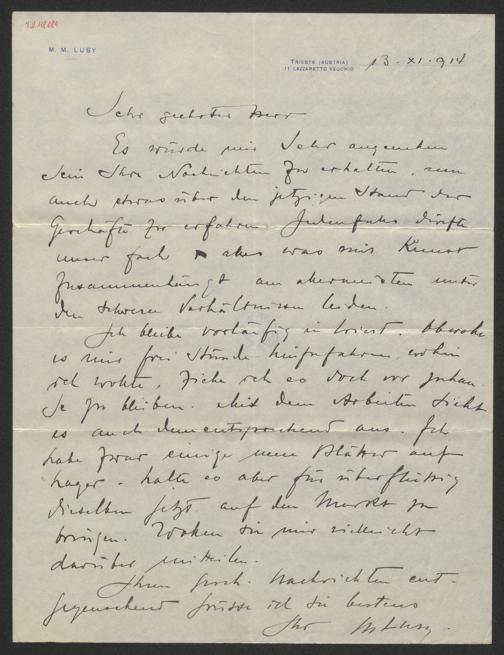 M. M. LUSY
TRIESTE (AUSTRIA)
11 LAZZARETTO VECCHIO
13 - XI - 914
Sehr geehrter Herr
Es würde mir sehr angenehm
sein Ihre Nachrichten zu erhalten, um
auch etwas über den jetzigen Stand der
Geschäfte zu erfahren. Jedenfalls dürfte
unser Fach & alles was mit Kunst
zusammenhängt am allermeisten unter
den schweren Verhältnissen leiden.
Ich bleibe vorläufig in Triest. Obwohl
es mir frei stünde hinzufahren, wohin
ich wollte, ziehe ich es doch vor zuhau-
se zu bleiben. Mit dem Arbeiten sieht
es auch dementsprechend aus. Ich
habe zwar einige neue Blätter auf
Lager - halte es aber für überflüssig
dieselben jetzt auf den Markt zu
bringen. Wollen Sie mir vielleicht
darüber mitteilen.
Ihren gesch. Nachrichten ent-
gegensehend grüsse ich Sie bestens
Ihr MLusy.